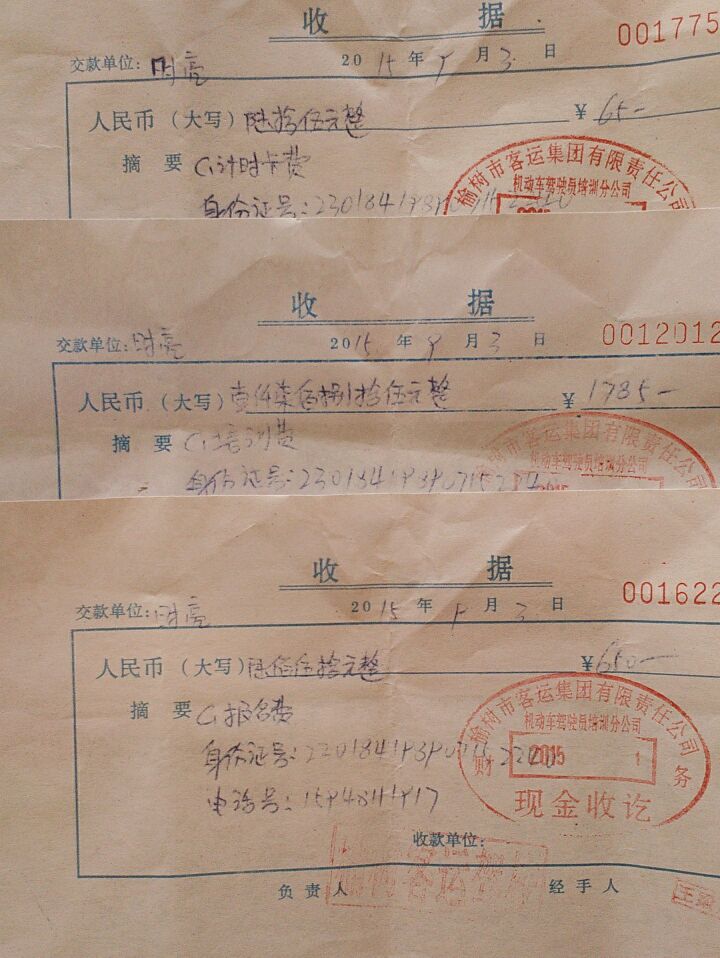 收 据
001775
交款单位: 时亮 2015年 月3日
人民币（大写）陆拾伍元整 ￥65-
摘 要 C1计时卡费
榆树市客运集团有限责任公司
机动车驾驶员培训分公司
身份证号:
2015
收 据
0012012
交款单位: 时亮 2015年 月3日
人民币（大写）壹仟柒佰捌拾伍元整 ￥1785-
摘 要 C1培训费
榆树市客运集团有限责任公司
机动车驾驶员培训分公司
身份证号:
2015
收 据
001622
交款单位: 时亮 2015年 月3日
人民币（大写）陆佰伍拾元整 ￥650-
摘 要 C1报名费
榆树市客运集团有限责任公司
机动车驾驶员培训分公司
身份证号:
财 2015 1 务
电话号:
现金收讫
收款单位:
负责人 经手人